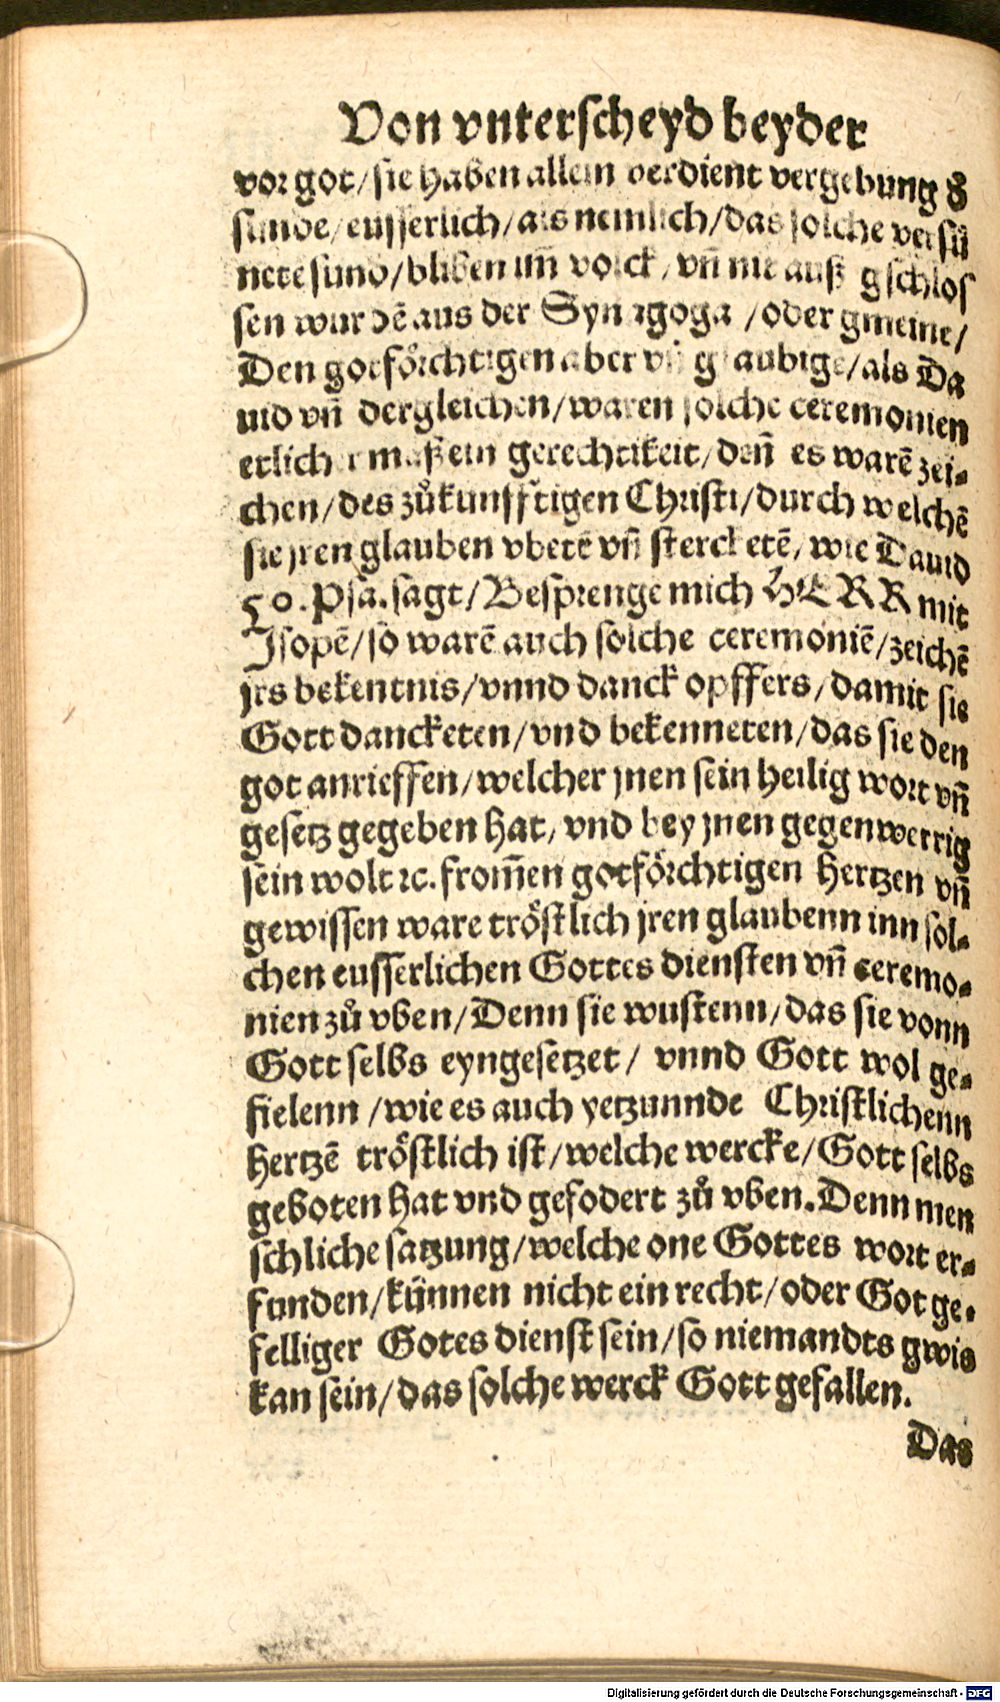 Von vnterscheyd beyder
vor got/sie haben allein verdient vergebung d̕
sunde/eusserlich/als nemlich/das solche versü
nete sund/bliben im̄ volck/vn̄ nit auß gschlos
sen wurdē aus der Synagoga /oder gmeine/
Den gotförchtigen aber vn̄ glaubigē/als Da
uid vn̄ dergleichen/waren solche ceremonien
etlicher maß ein gerechtikeit/den̄ es warē zei-
chen/des zůkunfftigen Christi/durch welchē
sie jren glauben vbetē vn̄ stercketē/wie Dauid
50. Psa. sagt/Besprenge mich HERR mit
Isopē/so warē auch solche ceremoniē/zeichē
jrs bekentnis/vnnd danck opffers/damit sie
Gott dancketen/vnd bekenneten/das sie den
got anrieffen/welcher jnen sein heilig wort vn̄
gesetz gegeben hat/vnd bey jnen gegenwertig
sein wolt ꝛc. from̄en gotförchtigen hertzen vn̄
gewissen ware tröstlich jren glaubenn inn sol-
chen eusserlichen Gottes diensten vn̄ ceremo-
nien zů vben/Denn sie wustenn/das sie vonn
Gott selbs eyngesetzet/ vnnd Gott wol ge-
fielenn /wie es auch yetzunnde Christlichenn
hertzē tröstlich ist/welche wercke/Gott selbs
geboten hat vnd gefodert zů vben. Denn men
schliche satzung/welche one Gottes wort er-
funden/künnen nicht ein recht/oder Got ge-
felliger Gotes dienst sein/so niemandts gwis
kan sein/das solche werck Gott gefallen.
Das
Digitalisierung gefördert durch die Deutsche Forschungsgemeinschaft - DFG